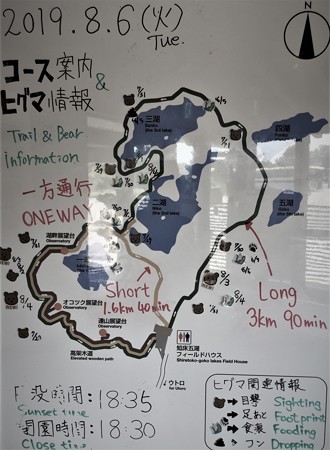 2019.8.6(火)
Tue.
コース案内
&
ヒグマ情報
Trail & Bear
information
一方通行
ONEWAY
N
三湖
Sanko
(the 3rd lake)
四湖
二湖
Niko
(the 2nd lake)
五湖
Goko
(the 5th lake)
湖畔展望台
Observatory
オコツク展望台
Observatory
連山展望台
Observatory
高架木道
Elevated wooden path
Short
1.6km 40min
Long
3km 90min
8/3
8/4
知床五湖
フィールドハウス
Shiretoko-goko lakes Field House
ウトロ
for Utoro
日没時間:18:35
Sunset time
閉園時間:18:30
Close time
ヒグマ関連情報
→目撃 Sighting
→足あと Foot print
→食痕 Fooding
→フン Dropping